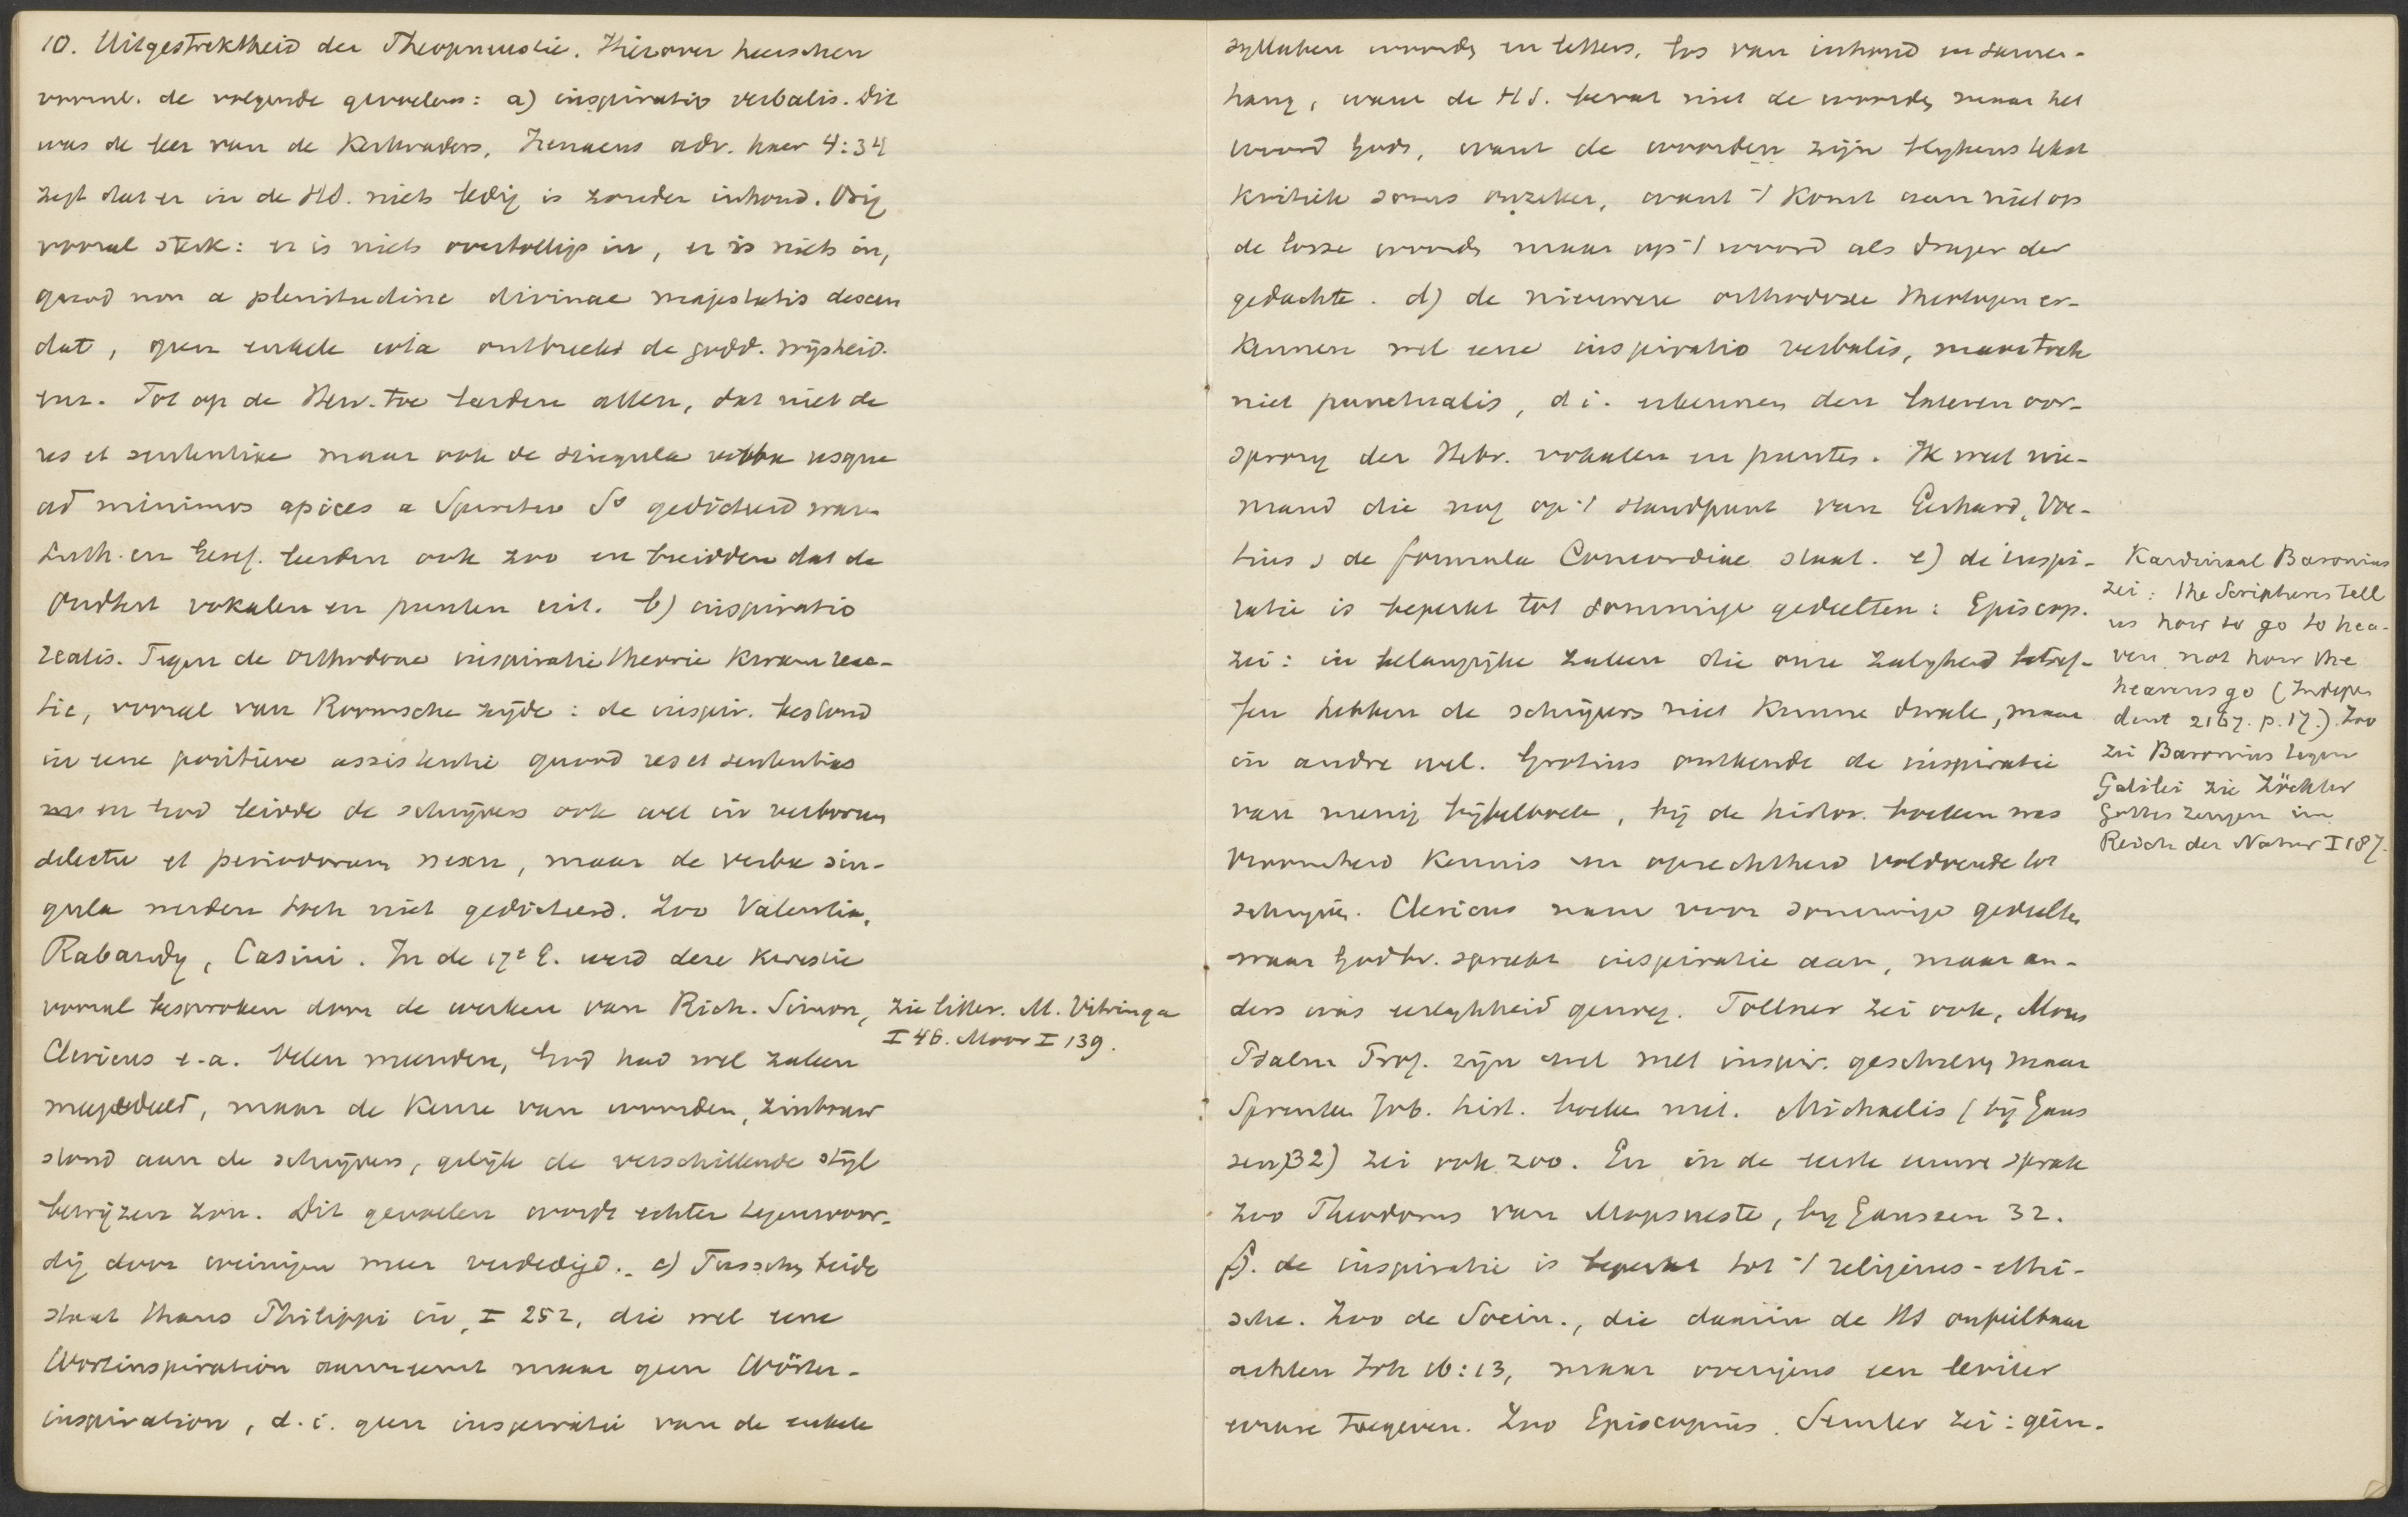 10. Uitgestrektheid der Theopneustie. Hierover heerschen
voornl. de volgende gevoelens: a) inspiratio verbalis. Dit
was de leer van de Kerkvaders, Irenaeus adv. haer 4:34
zegt dat er in de HS. niets ledig is zonder inhoud. Orig
vooral sterk: er is niets overtollige in, er is niets in,
quod non a plenitudine divinae majestatis descen
dat, geen enkele iota ontbreekt de godd. wijsheid.
enz. Tot op de Herv. toe leerden allen, dat niet de
res et sententiae maar ook de singula verba usque
ad minimos apices a Spiritu So gedicteerd waren
Luth. en Geref. leerden ook zoo en breidden dat de
Oudhst vokalen en punten uit. b) inspiratio
realis. Tegen de orthodoxe inspiratietheorie kwam reac-
tie, vooral van Roomsche zijde: de inspir. bestond
in eene positieve assistentie quoad res et sententias
en God leidde de schrijvers ook wel in verborum
delectu et periodorum nexu, maar de verba sin-
gula werden toch niet gedicteerd. Zoo Valentia,
Rabardy, Casini. In de 17e E. werd deze kwestie
vooral besproken door de werken van Rich. Simon,
Clericus e.a. Velen meenden, God had wel zaken
megedeeld, maar de keuze van woorden, zinbouw
stond aan de schrijvers, gelijk de verschillende stijl
bewijzen zou. Dit gevoelen wordt echter tegenwoor-
dig door weinigen meer verdedigd. c) Tusschen beide
staat thans Philippi in, I 252, die wel eene
Wortinspiration aanneemt maar geen Wörter-
inspiration, d.i. geen inspiratie van de enkele
zie litter. M. Vitringa
I 46. Moor I 139.
syllaben woorden en letters, los van inhoud en samen-
hang, want de HS. bevat niet de woorden maar het
woord Gods, want de woorden zijn blijkens tekst
kritiek soms onzeker, want 't komt aan niet op
de losse woorden maar op 't woord als drager der
gedachte. d) de nieuwere orthodoxe theologen er-
kennen wel eene inspiratio verbalis, maar toch
niet punctualis, d i. erkennen den lateren oor-
sprong der Hebr. vokalen en punten. Ik weet nie-
mand die nog op 't standpunt van Gerhard, Voe-
tius, de formula Concordiae staat. e) de inspi-
ratie is beperkt tot sommige gedeelten: Episcop.
zei: in belangrijke zaken die onze zaligheid betref-
fen hebben de schrijvers niet kunnen dwalen, maar
in andre wel. Grotius ontkende de inspiratie
van menig bijbelboek, bij de histor. boeken was
vroomheid kennis en oprechtheid voldoende tot
schrijven. Clericus nam voor sommige gedeelten
waar Godhr. spraken inspiratie aan, maar an-
ders was eerlijkheid genoeg. Töllner zei ook, Mozes
Psalm Prof. zijn wel met inspir. geschreven maar
Spreuken Job. hist. boeken niet. Michaelis (bij Gaus
sen 32) zei ook zoo. En in de eerste eeuwe sprak
zoo Theodorus van Mopsueste, by Gaussen 32.
f). de inspiratie is beperkt tot 't religieus-ethi-
sche. Zoo de Socin., die daarin de HS onfeilbaar
achten Joh 16:13, maar overigens een leviter
errare toegeven. Zoo Episcopius. Semler zei: geïn-
Kardinaal Baronius
zei: the Scriptures tell
us how to go to hea-
ven, not how the
heavens go (Indepen
dent 2167. p. 17.). Zoo
zei Baronius tegen
Galilei zie Zöckler
Gottes Zeugen im
Reich der Natur I 187.